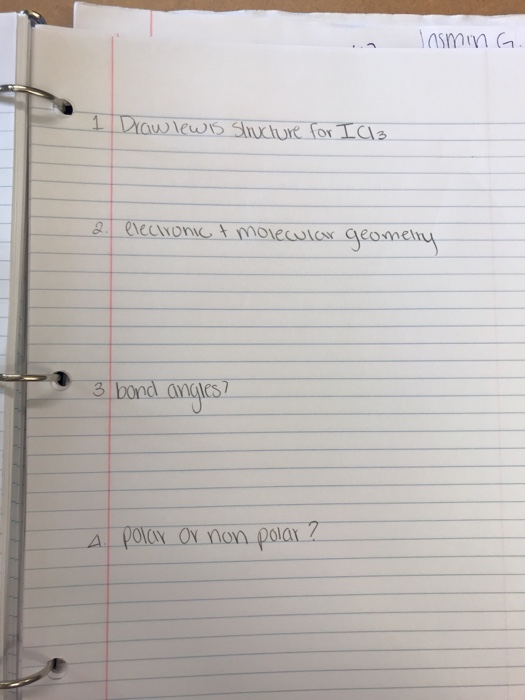 Jasmin G.
1 Draw lewis structure for ICl3
2. electronic + molecular geometry
3 bond angles?
4. polar or non polar?